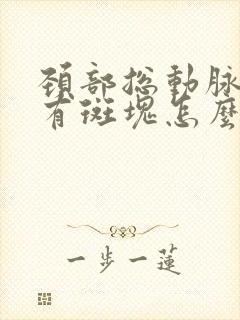 頚部総動脈
有斑塊怎麼
一步一蓮